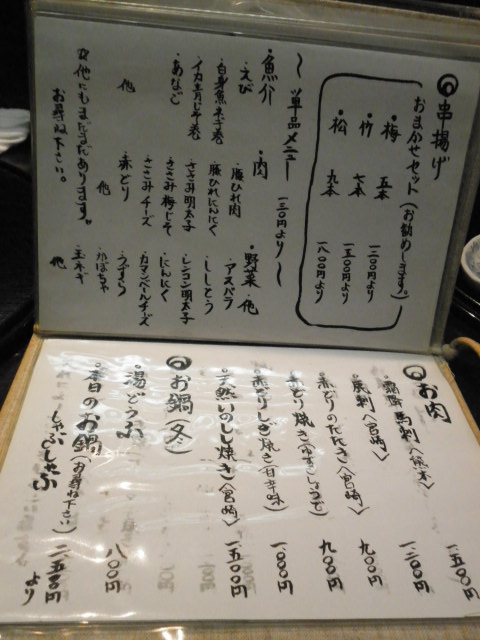 串揚げ
おまかせセット(お勧めします。)
・梅 五本 一二〇〇円より
・竹 七本 一五〇〇円より
・松 九本 一八〇〇円より
〜単品メニュー 一三〇円より〜
・魚介
・えび
・白身魚ネギ巻
・イカ青じそ巻
・あなご
他
・肉
・豚ひれ肉
・豚ひれにんにく
・ささみ明太子
・ささみ梅じそ
・ささみチーズ
・赤どり
他
・野菜・他
・アスパラ
・ししとう
・レンコン明太子
・にんにく
・カマンベールチーズ
・うずら
・かぼちゃ
・玉ネギ
他
その他にもまだまだあります。
お尋ね下さい。
お肉
馬刺〈熊本〉 一五〇〇円
刺〈宮崎〉 一二〇〇円
赤どりのたたき〈宮崎〉 九〇〇円
赤どり焼き(ゆずこしょうで) 九〇〇円
赤どりしぎ焼き(甘辛味) 一〇〇〇円
天然いのしし焼き〈宮崎〉 一五〇〇円
お鍋(冬)
湯どうふ 八〇〇円
春のお鍋(お尋ね下さい) 二五〇〇円より
しゃぶしゃぶ